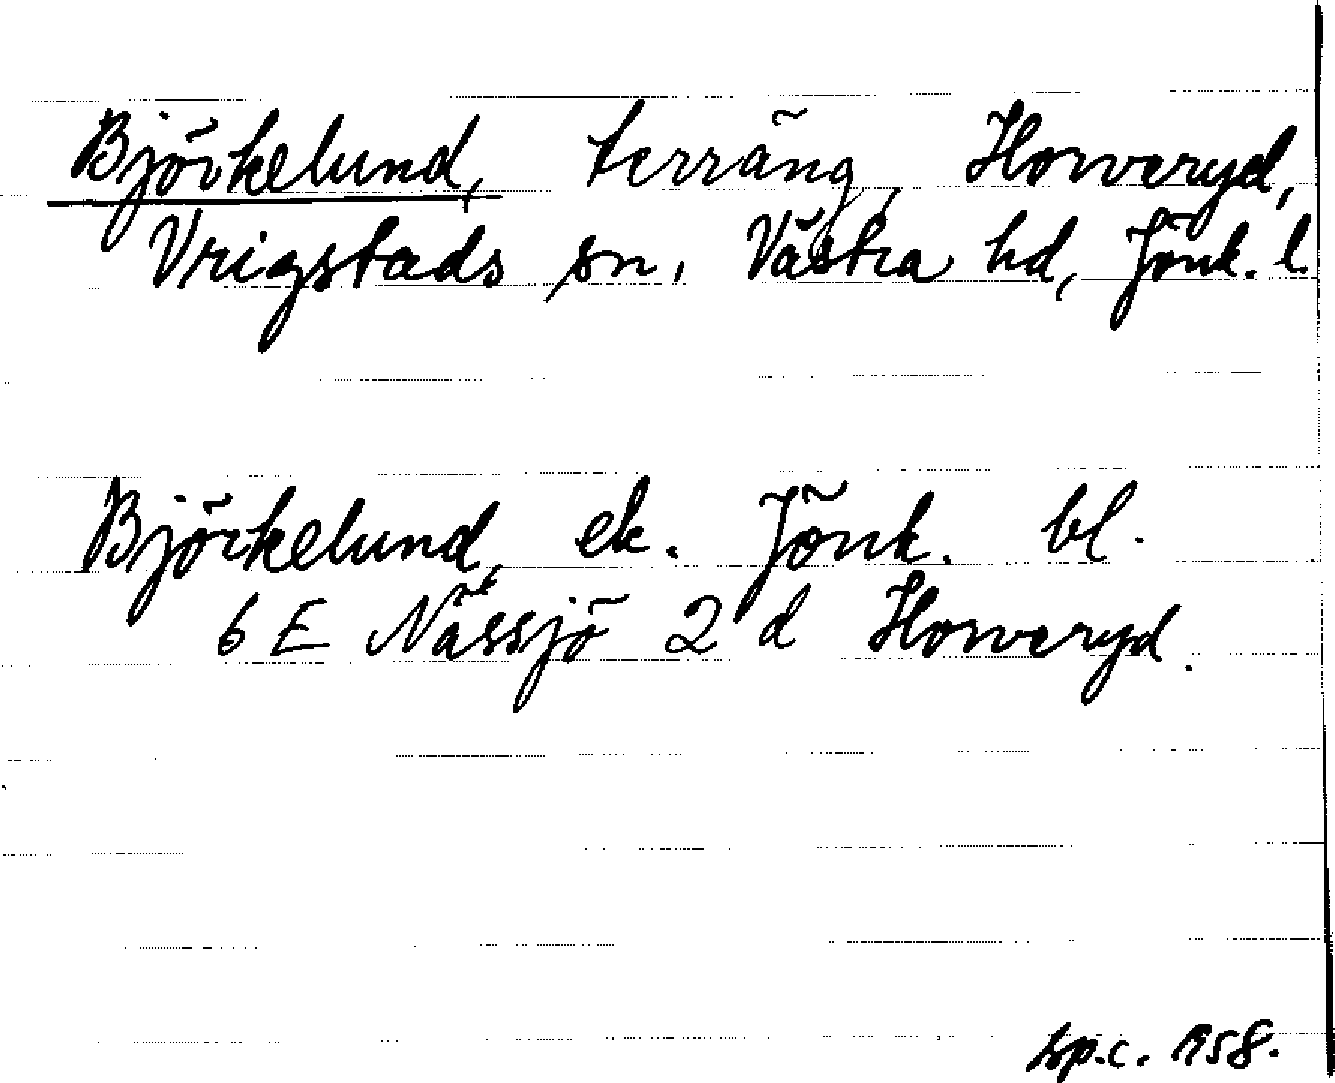 Björkelund, terräng, Horveryd,
Vrigstads sn, Västra hd, Jönk. l.
Björkelund, ek. Jönk. bl.
6 E Nässjö 2 d Horveryd.
sp.c. 1958.